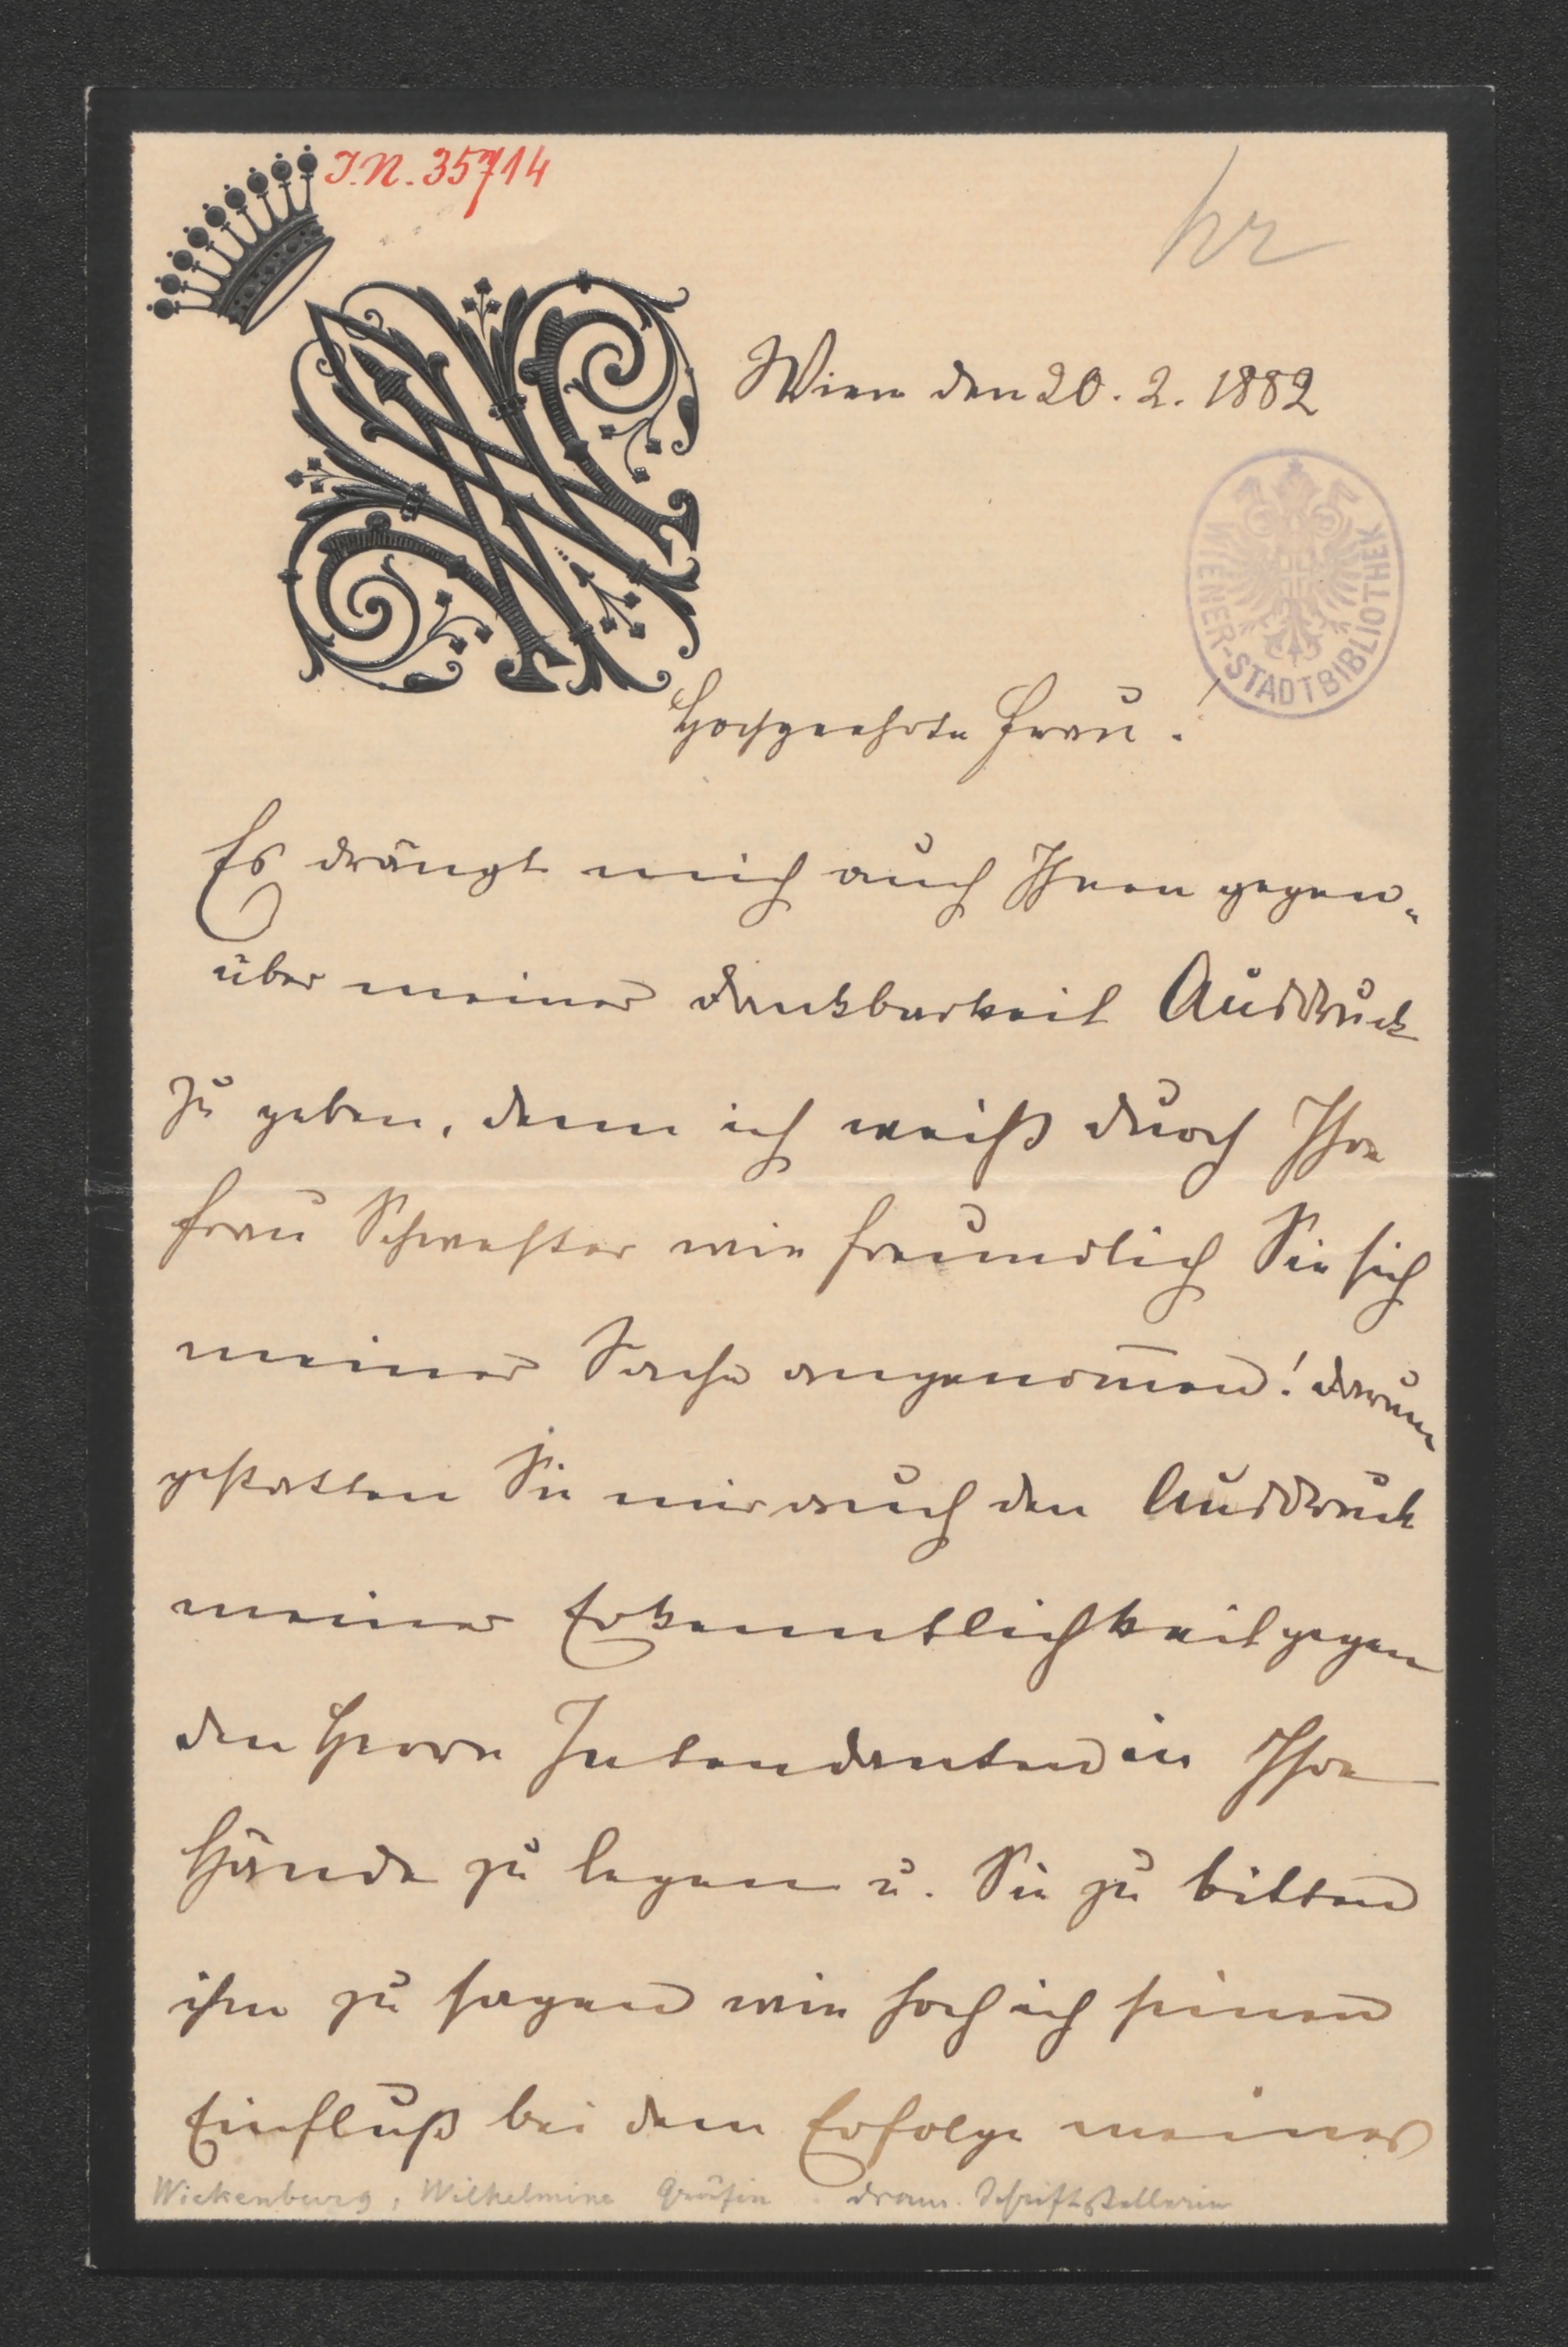 J.N. 35714
hr
Wien den 20. 2. 1882
WIENER-STADTBIBLIOTHEK
Hochgeehrte Frau!
Es drängt mich auch Ihnen gegen-
über meiner Dankbarkeit Ausdruck
zu geben, denn ich weiß durch Ihre
Frau Schwester wie freundlich Sie sich
meiner Sache angenom̅en! Darum
gestatten Sie mir auch den Ausdruck
meiner Erkenntlichkeit gegen
den Herrn Intendanten in Ihre
Hände zu legen u. Sie zu bitten
ihm zu sagen wie hoch ich seinen
Einfluß bei dem Erfolge meines
Wickenburg, Wilhelmine Gräfin. dram. Schriftstellerin